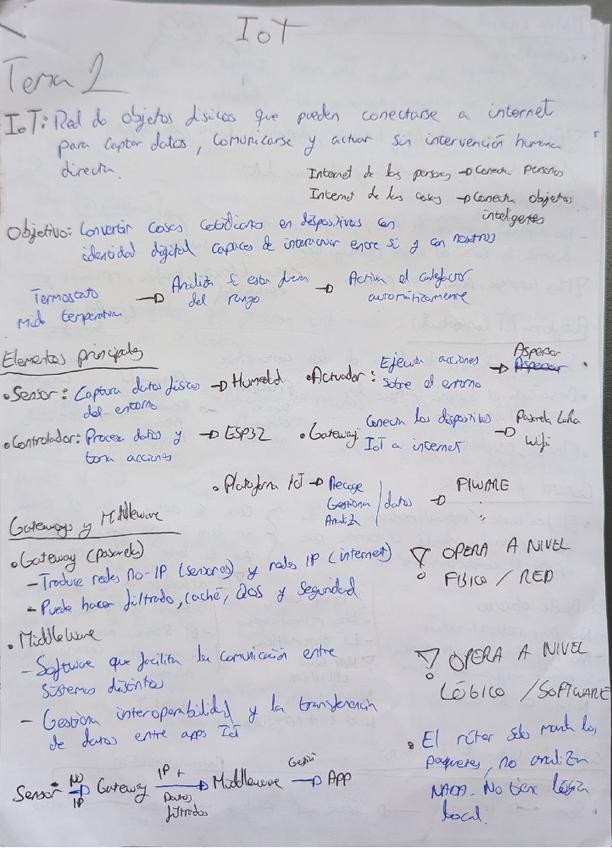 IoT
Tema 2
IoT: Red de objetos físicos que pueden conectarse a internet
para captar datos, comunicarse y actuar sin intervención humana
directa.
Internet de las personas → Conecta personas
Internet de las cosas → Conecta objetos
inteligentes
Objetivo: Convertir cosas cotidianas en dispositivos con
identidad digital capaces de interactuar entre sí y con nosotros
Termostato → Analiza si esta fuera → Activa el calefactor
Mide temperatura del rango automáticamente
Elementos principales
• Sensor: Captura datos físicos → Humedad
del entorno
• Actuador: Ejecuta acciones → Aspersor
sobre el entorno
• Controlador: Procesa datos y → ESP32
toma acciones
• Gateway: Conecta los dispositivos → Pasarela LoRa
IoT a internet Wifi
• Plataforma IoT → Recoge
Gestiona / datos → FIWARE
Analiza
Gateways y Middleware
• Gateway (pasarela)
- Traduce redes no-IP (sensores) y redes IP (internet)
- Puede hacer filtrado, caché, QOS y seguridad
! OPERA A NIVEL
FISICO / RED
• Middleware
- Software que facilita la comunicación entre
sistemas distintos
- Gestiona interoperabilidad y la transferencia
de datos entre apps IoT
! OPERA A NIVEL
LÓGICO / SOFTWARE
• El rúter solo manda los
paquetes, no analiza
NADA. No tiene lógica
local.
Sensor → NO IP Gateway → IP + Datos filtrados Middleware → APP